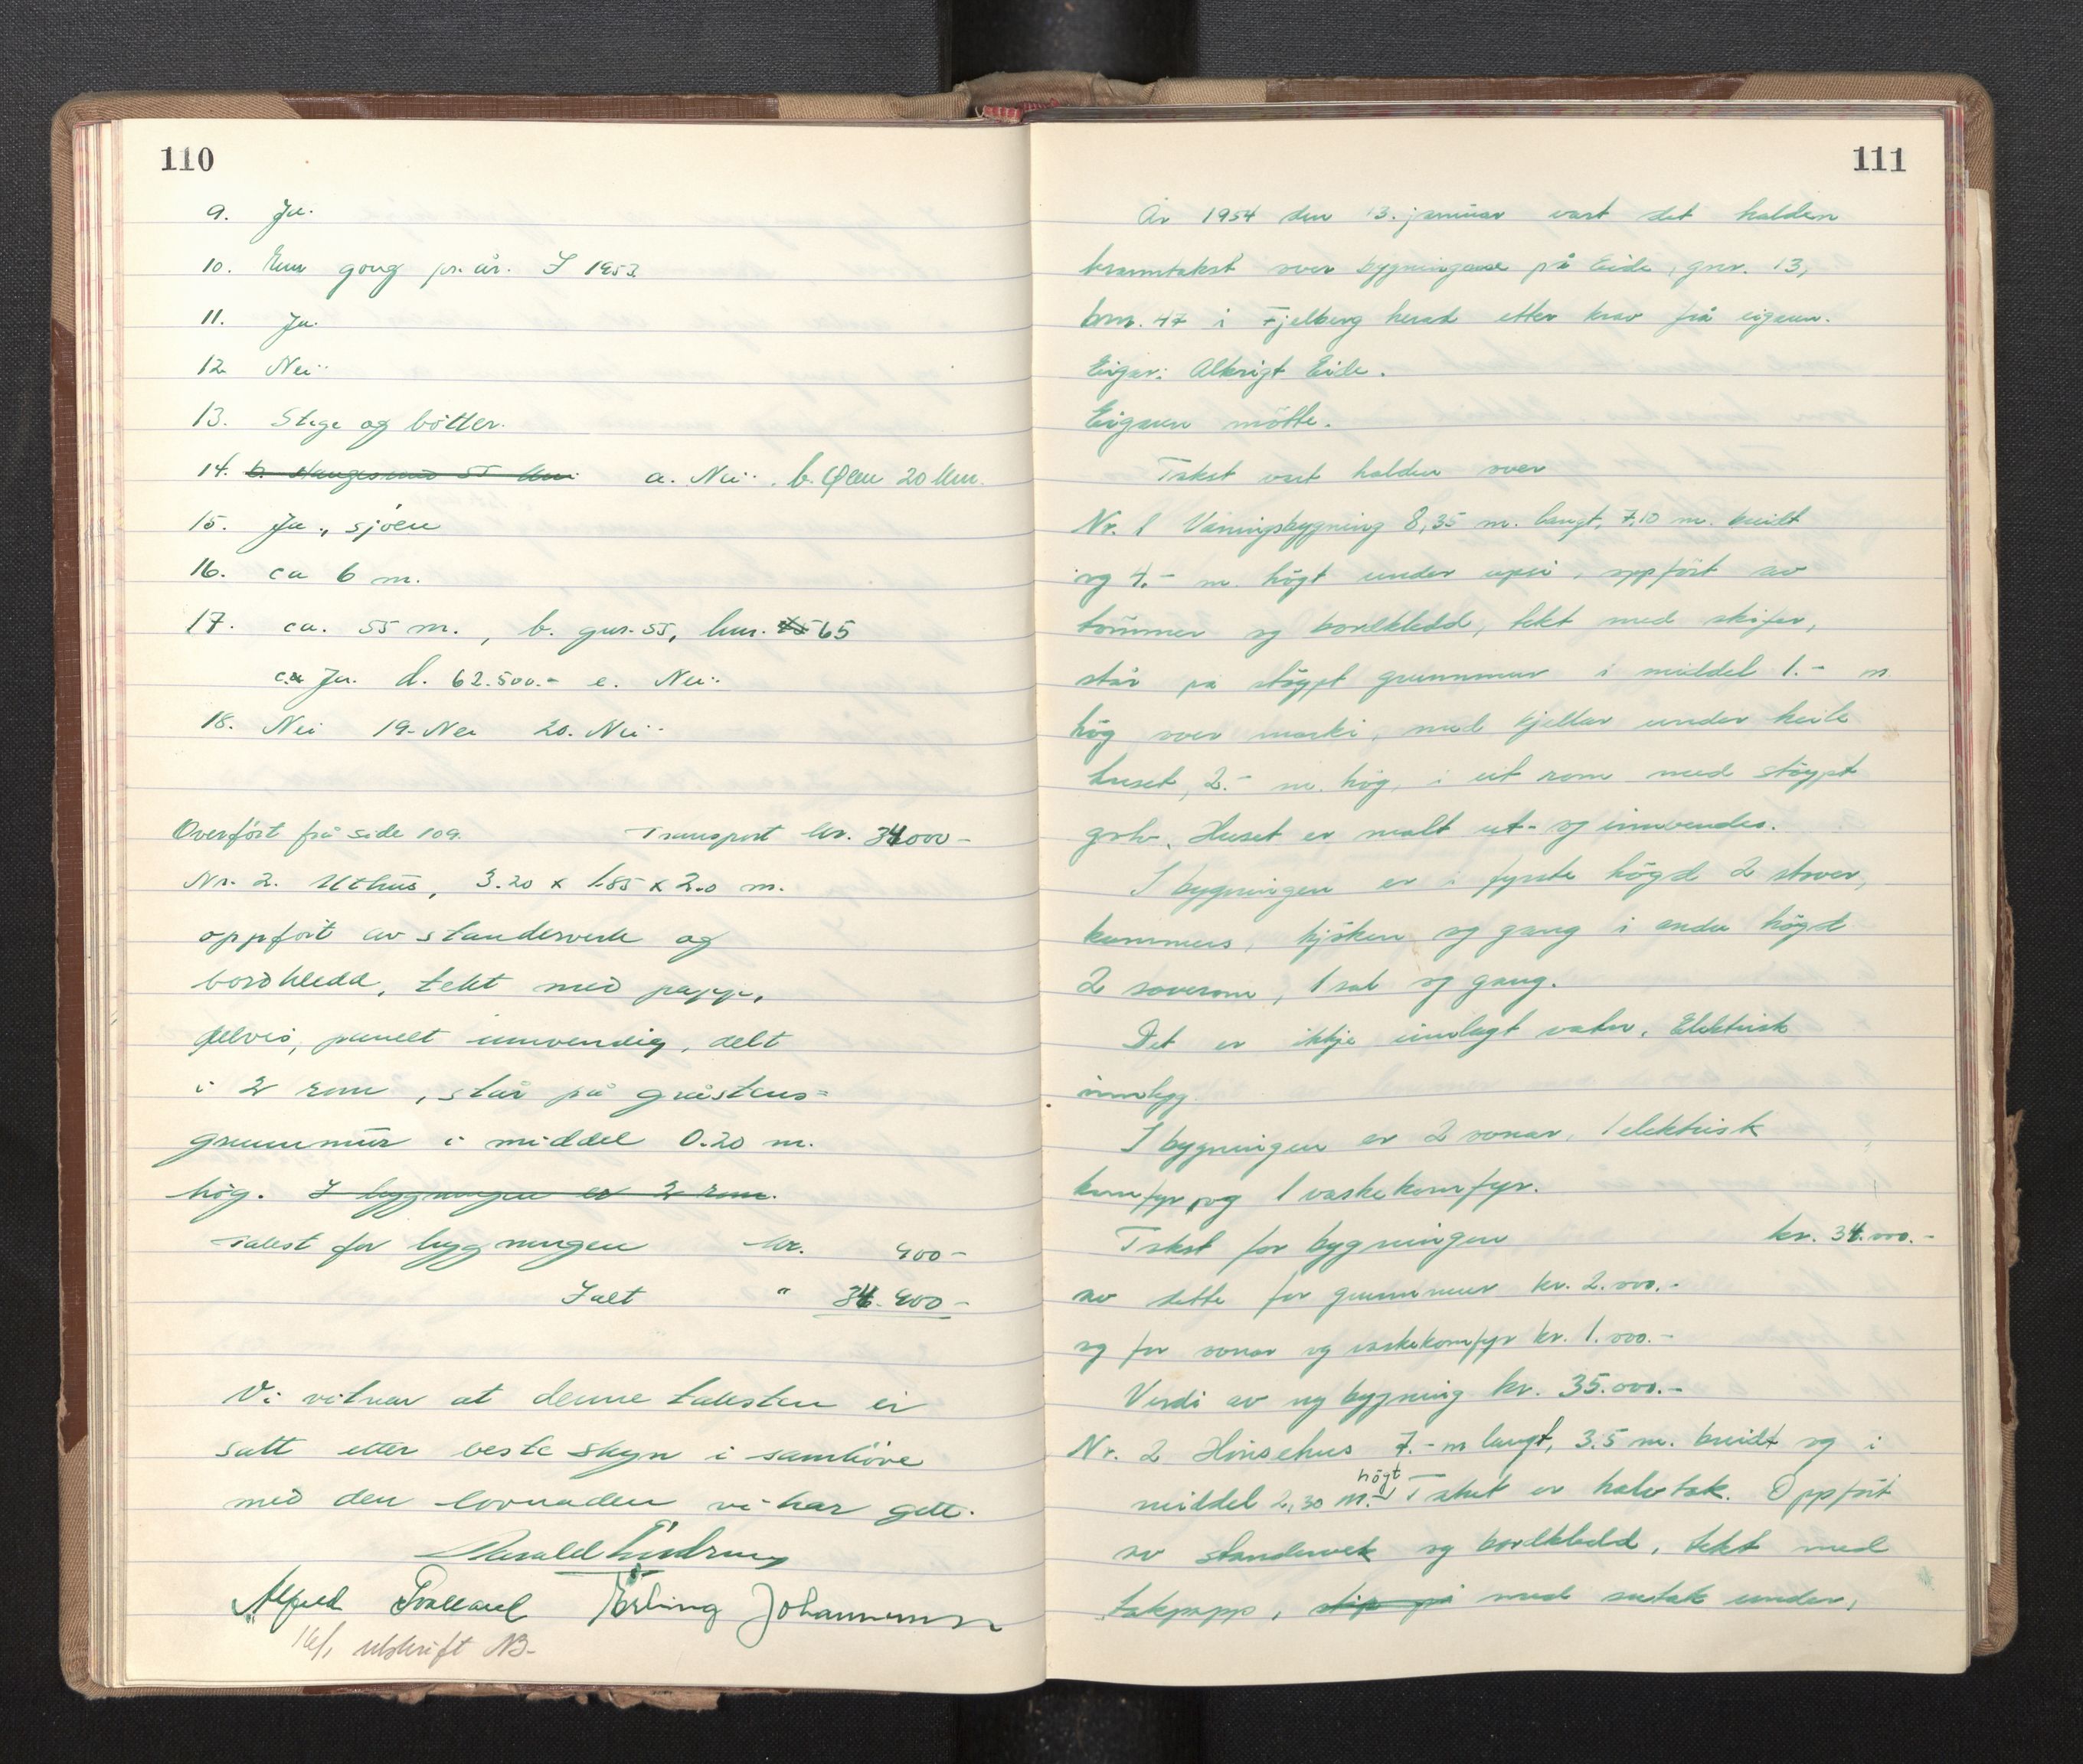 110
9. Ja.
10. Ein gong pr. år. I 1953
11. Ja.
12 Nei
13. Stege og bötter.
14. b. Haugesund 55 km a. Nei. b. Ølen 20 km.
15. Ja, sjöen
16. ca 6 m.
17. ca. 55 m., b. gnr. 55, bnr. 65
c. Ja. d. 62.500.- e. Nei
18. Nei 19. Nei 20. Nei
Overfört frå side 109. Transport kr. 34000-
Nr. 2. Uthus, 3.20 x 1.85 x 2.0 m.
oppfört av standerverk og
bordkledd, tekt med papp,
delvis, panelt innvendig, delt
i 2 rom, står på gråsteins-
grunnmur i middel 0.20 m.
hög. I byggningen er 2 rom.
Takst for byggningen kr. 400-
Ialt " 34.400-
Vi vitnar at denne taksten er
satt etter beste skyn i samhöve
med den lovnaden vi har gitt.
Alfred Erling Johannessen
16/1 utskrift NB-
111
År 1954 den 13. januar vart det halden
branntakst over bygningane på Eide, gnr. 13,
bnr. 47 i Fjelberg herad etter krav frå eigaren.
Eigar: Alkrigt Eide.
Eigaren mötte.
Takst vart halden over
Nr. 1 Våningsbygning 8,35 m. langt, 7,10 m. breidt
og 4.- m. högt under upsi, oppfört av
tömmer og bordkledd, tekt med skifer,
står på stöypt grunnmur i middel 1.- m
hög over marki, med kjellar under heile
huset, 2.- m. hög, i eit rom med stöypt
golv. Huset er malt ut- og innvendes.
I bygningen er i fyrste högd 2 stover,
kammers, kjöken og gang i andre högd
2 soverom, 1 sal og gang.
Det er ikkje innlagt vatn. Elektrisk
innlegg.
I bygningen er 2 omnar, 1 elektrisk
komfyr, og 1 vaskekomfyr.
Takst for bygningen kr. 34.000.-
av dette for grunnmur kr. 2.000.-
og for omnar og vaskekomfyr kr. 1.000.-
Verdi av ny bygning kr. 35.000.-
Nr. 2 Hönsehus 7.- m langt, 3.5 m. breidt og i
middel 2,30 m. högt Taket er halvtak. Oppfört
av standerverk og bordkledd, tekt med
takpapp, med sutak under,